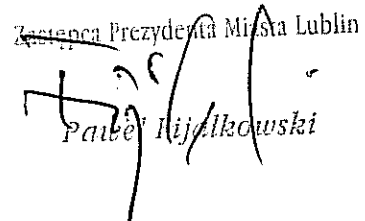 Zastępca Prezydenta Miasta Lublin
Paweł Fijałkowski